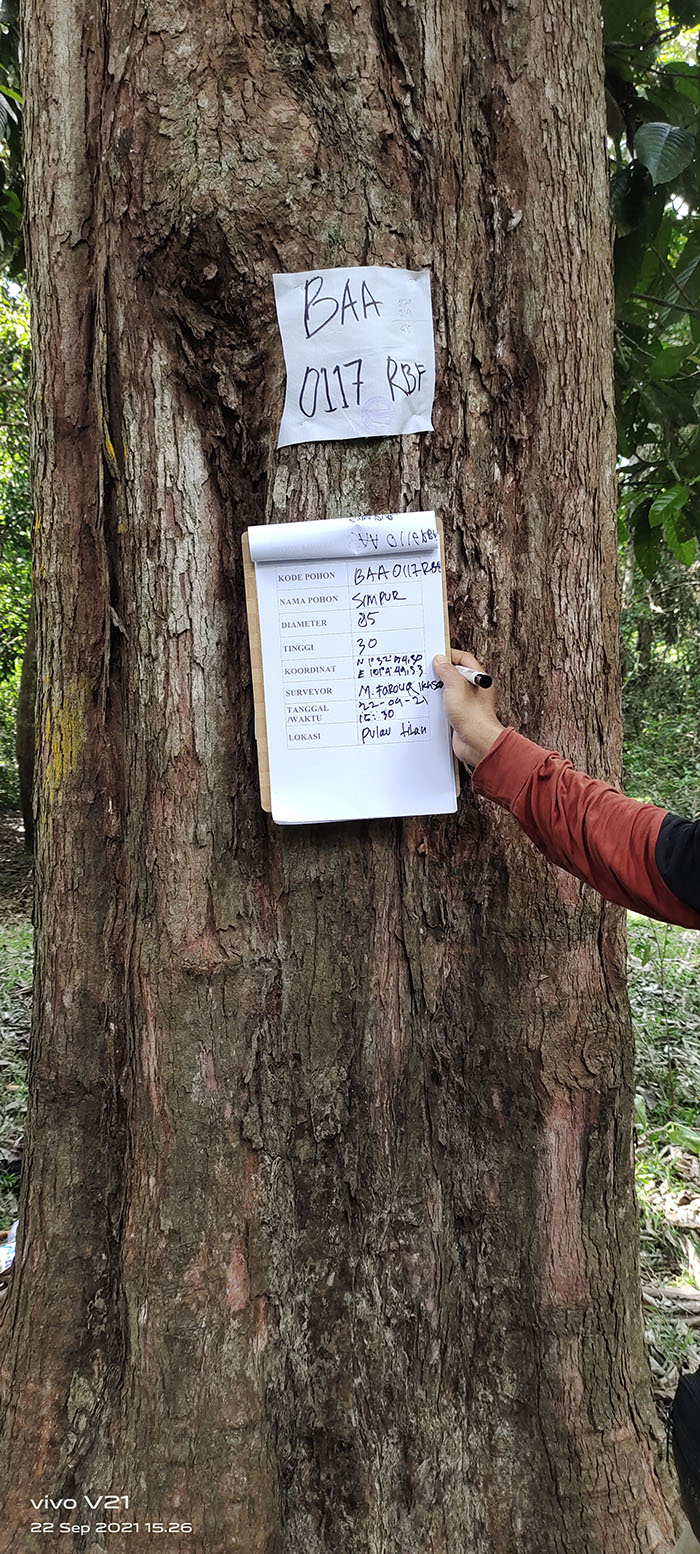 BAA
0117 RBF
KODE POHON BAA 0117 RBF
NAMA POHON SIMPUR
DIAMETER 85
TINGGI 30
KOORDINAT N 1°32'
E 101°
SURVEYOR M. FAROUQ
TANGGAL 22-09-21
/WAKTU 15:30
LOKASI Pulau
vivo V21
22 Sep 2021 15.26